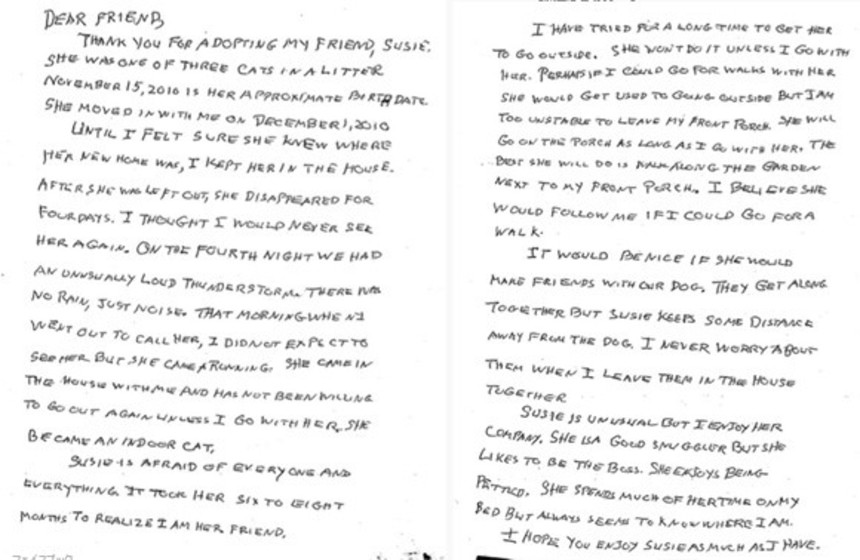 DEAR FRIEND,
THANK YOU FOR ADOPTING MY FRIEND, SUSIE.
SHE WAS ONE OF THREE CATS IN A LITTER
NOVEMBER 15, 2010 IS HER APPROXIMATE BIRTHDATE.
SHE MOVED IN WITH ME ON DECEMBER 1, 2010
UNTIL I FELT SURE SHE KNEW WHERE
HER NEW HOME WAS, I KEPT HER IN THE HOUSE.
AFTER SHE WAS LEFT OUT, SHE DISAPPEARED FOR
FOUR DAYS. I THOUGHT I WOULD NEVER SEE
HER AGAIN. ON THE FOURTH NIGHT WE HAD
AN UNUSUALLY LOUD THUNDERSTORM. THERE WAS
NO RAIN, JUST NOISE. THAT MORNING WHEN I
WENT OUT TO CALL HER, I DID NOT EXPECT TO
SEE HER BUT SHE CAME A RUNNING. SHE CAME IN
THE HOUSE WITH ME AND HAS NOT BEEN WILLING
TO GO OUT AGAIN UNLESS I GO WITH HER. SHE
BECAME AN INDOOR CAT.
SUSIE IS AFRAID OF EVERYONE AND
EVERYTHING. IT TOOK HER SIX TO EIGHT
MONTHS TO REALIZE I AM HER FRIEND.
I HAVE TRIED FOR A LONG TIME TO GET HER
TO GO OUTSIDE. SHE WON'T DO IT UNLESS I GO WITH
HER. PERHAPS IF I COULD GO FOR WALKS WITH HER
SHE WOULD GET USED TO GOING OUTSIDE BUT I AM
TOO UNSTABLE TO LEAVE MY FRONT PORCH. SHE WILL
GO ON THE PORCH AS LONG AS I GO WITH HER. THE
BEST SHE WILL DO IS WALK ALONG THE GARDEN
NEXT TO MY FRONT PORCH. I BELIEVE SHE
WOULD FOLLOW ME IF I COULD GO FOR A
WALK.
IT WOULD BE NICE IF SHE WOULD
MAKE FRIENDS WITH OUR DOG. THEY GET ALONG
TOGETHER BUT SUSIE KEEPS SOME DISTANCE
AWAY FROM THE DOG. I NEVER WORRY ABOUT
THEM WHEN I LEAVE THEM IN THE HOUSE
TOGETHER
SUSIE IS UNUSUAL BUT I ENJOY HER
COMPANY. SHE IS A GOOD SNUGGLER BUT SHE
LIKES TO BE THE BOSS. SHE ENJOYS BEING
PETTED. SHE SPENDS MUCH OF HER TIME ON MY
BED BUT ALWAYS SEEMS TO KNOW WHERE I AM.
I HOPE YOU ENJOY SUSIE AS MUCH AS I HAVE.